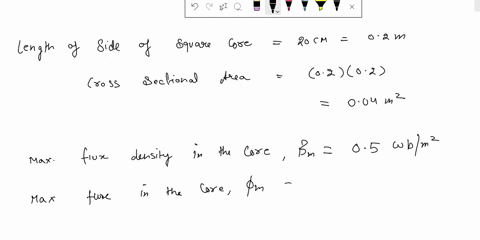 Length of Side of Square Core = 20 CM = 0.2 m
Cross Sectional Area = (0.2) (0.2)
= 0.04 m²
Max. flux density in the core, Bm = 0.5 wb/m²
Max flux in the core, ϕm =